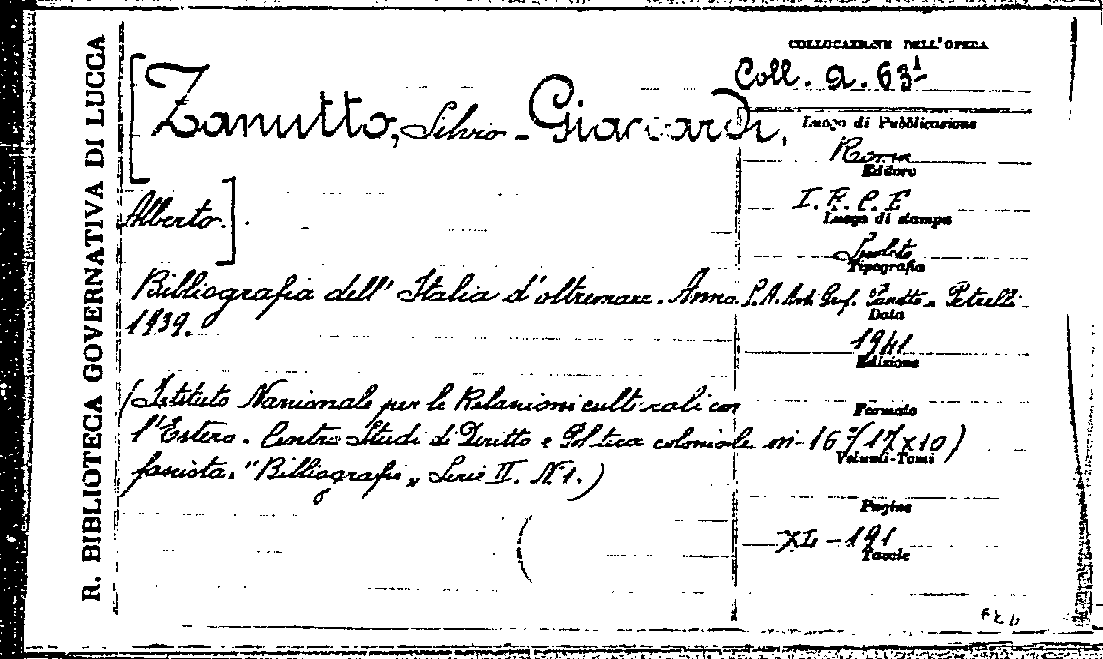 R. BIBLIOTECA GOVERNATIVA DI LUCCA
COLLOCAZIONE DELL'OPERA
Coll. a. 63¹
[Zanutto, Silvio - Giaccardi,
Alberto].
Bibliografia dell'Italia d'oltremare. Anno
1939.
(Istituto Nazionale per le Relazioni culturali con
l'Estero. Centro Studi di Diritto e Politica coloniale
fascista. "Bibliografie" Serie II. N. 1.)
(
Luogo di Pubblicazione
Roma
Editore
I. R. C. E
Luogo di stampa
Spoleto
Tipografia
S. A. Arti Graf. Panetto - Petrelli
Data
1941
Edizione
Formato
in-16° (17x10)
Volumi-Tomi
Pagine
XL - 191
Tavole